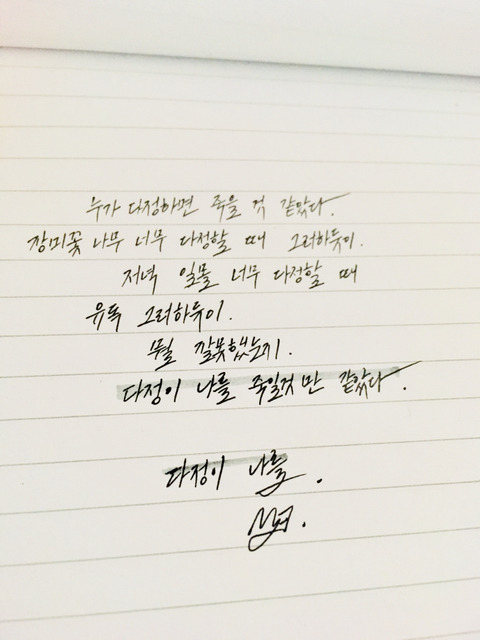 누가 다정하면 죽을 것 같았다.
장미꽃 나무 너무 다정할 때 그러하듯이.
저녁 일몰 너무 다정할 때
유독 그러하듯이.
뭘 잘못했는지.
다정이 나를 죽일것만 같았다.
다정이 나를.